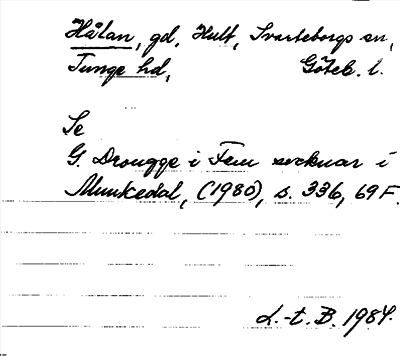 Hålan, gd, Hult, Svarteborgs sn,
Tunge hd, Göteb. l.
Se
G. Drougge i Fem socknar i
Munkedal, (1980), s. 336, 69 F.
L.-t. B. 1984.